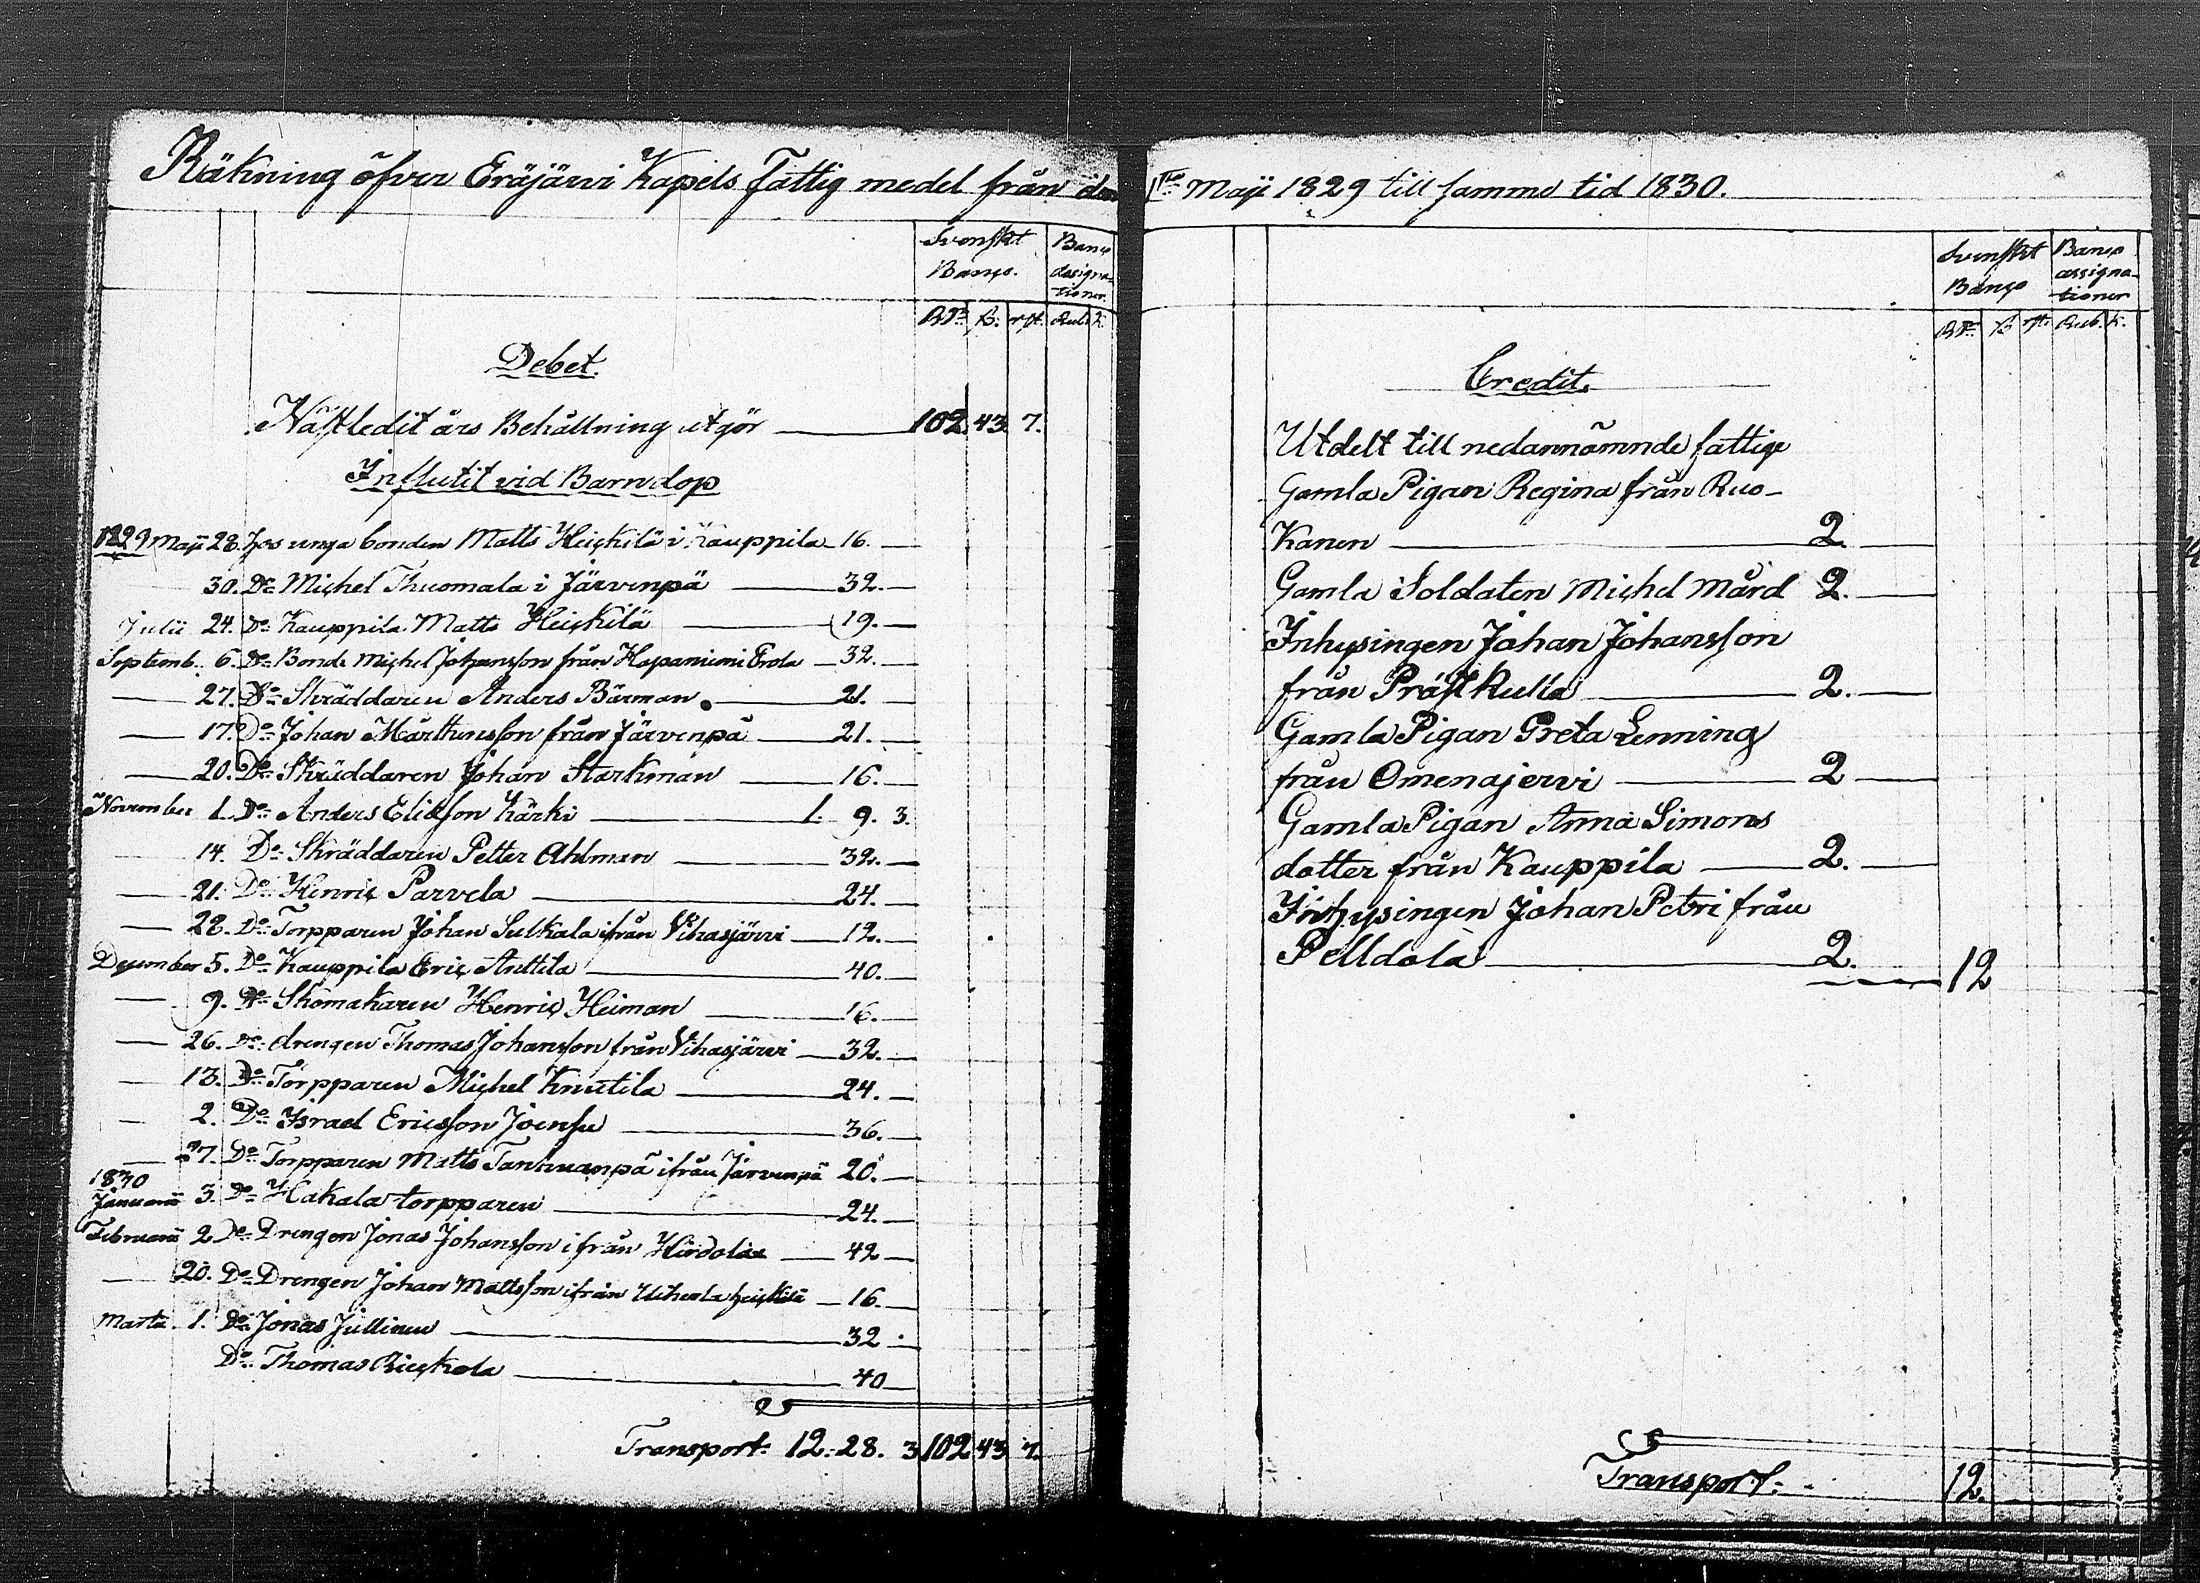 Räkning öfver Eräjärvi Kapels Fattig medel från den
Svenskt Banço. Banço assignationer.
RDr ß. rst. Rub. K.
Debet.
Nästledit års Behållning utgör 102. 43. 7.
Influtit vid Barndop
1829 Maji 28. hos unga bonden Matts Heickilä i Kauppila 16.
30. Do Michel Thuomala i Järvenpä 32.
Julii 24. Do Kauppila Matts Heickilä 19.
Septemb. 6. Do Bonde Michel Johansson från Hapaniemi Erola 32.
27. Do Skräddaren Anders Bärman 21.
17. Do Johan Mårtensson från Järvenpä 21.
20. Do Skräddaren Johan Starkman 16.
November 1. Do Anders Eliasson Kärki 1. 9. 3.
14. Do Skräddaren Petter Ahlman 32.
21. Do Henric Parvela 24.
28. Do Torpparen Johan Sulkala ifrån Vihasjärvi 12.
December 5. Do Kauppila Eric Anttila 40.
9. Do Skomakaren Henric Heiman 16.
26. Do drengen Thomas Johansson från Vihasjärvi 32.
13. Do Torpparen Michel Knutila 24.
2. Do Israel Ericsson Joensu 36.
27. Do Torpparen Matts ifrån Järvenpä 20.
1830
Januarii 3. Do Hakala torpparen 24.
Februarii 2. Do Drengen Jonas Johansson ifrån 42
20. Do Drengen Johan Mattsson ifrån Uiherla 16.
Martii 1. Do Jonas Jullinen 32.
Do Thomas 40
Transport: 12. 28. 3 102 43 7.
1sta Maji 1829 till samma tid 1830.
Svenskt Banço Banço assignationer
RDr ß rst. Rub. K.
Credit.
Utdelt till nedannämnde fattige
Gamla Pigan Regina från Ruo-
kanen 2.
Gamla Soldaten Michel Mård 2.
Inhysingen Johan Johansson
från Prästkulla 2.
Gamla Pigan Greta Lenning
från Omenajervi 2
Gamla Pigan Anna Simons
dotter från Kauppila 2.
Inhysingen Johan Petri från
Pelldola 2. 12
Transport: 12.